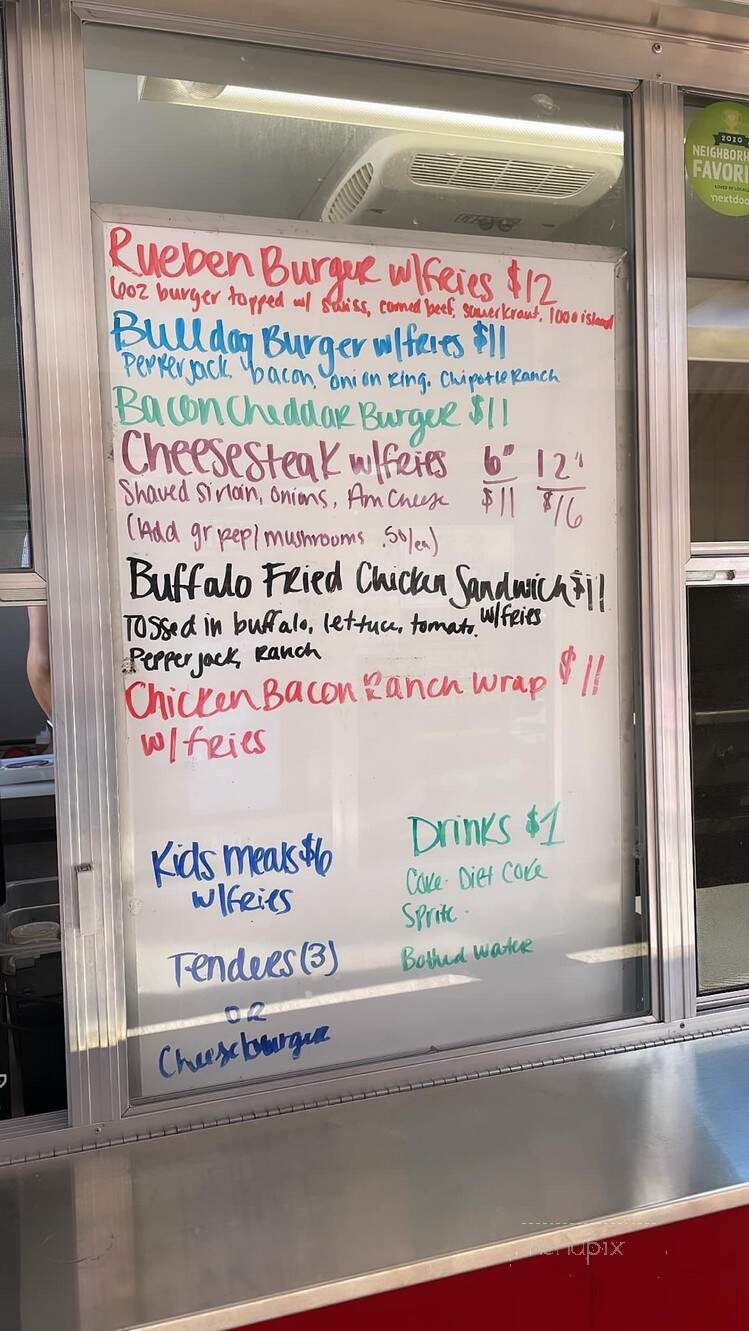 2020
NEIGHBORH
FAVORI
nextdoo
Rueben Burger w/fries $12
6oz burger topped w/ swiss, corned beef, sauerkraut, 1000 island
Bulldog Burger w/fries $11
Pepperjack, bacon, onion ring, Chipotle Ranch
Bacon Cheddar Burger $11
Cheesesteak w/fries 6" 12"
Shaved Sirloin, onions, Am Cheese $11 $16
(Add gr pep/mushrooms .50/ea)
Buffalo Fried Chicken Sandwich $11
Tossed in buffalo, lettuce, tomato, w/fries
Pepperjack, Ranch
Chicken Bacon Ranch Wrap $11
w/fries
Kids meals $6
w/fries
Tenders (3)
OR
Cheeseburger
Drinks $1
Coke · Diet Coke
Sprite ·
Bottled Water
menupix